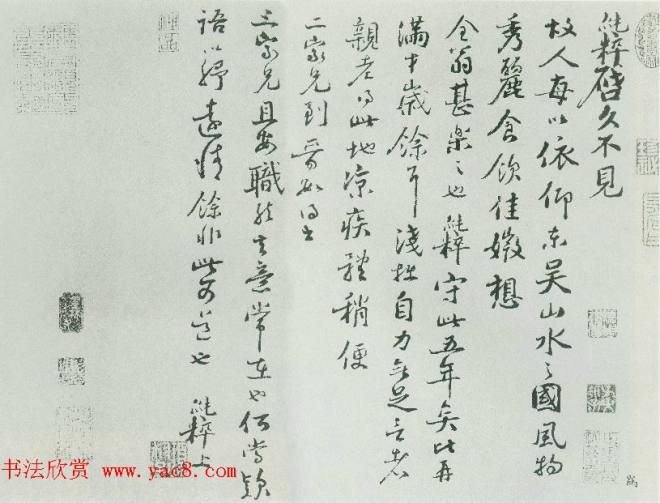 純粹啓久不見
故人每以依仰東吳山水之國風物
秀麗食飲佳媺想
全翁甚樂之也純粹守此五年矣比再
滿中歲餘耳淺拙自力無足言者
親老得此地涼疾體稍便
二家兄到晉數得書
三家兄且安職然其意常在也何當
語以舒遠情餘非此可道也純粹上
书法欣赏 www.yac8.com